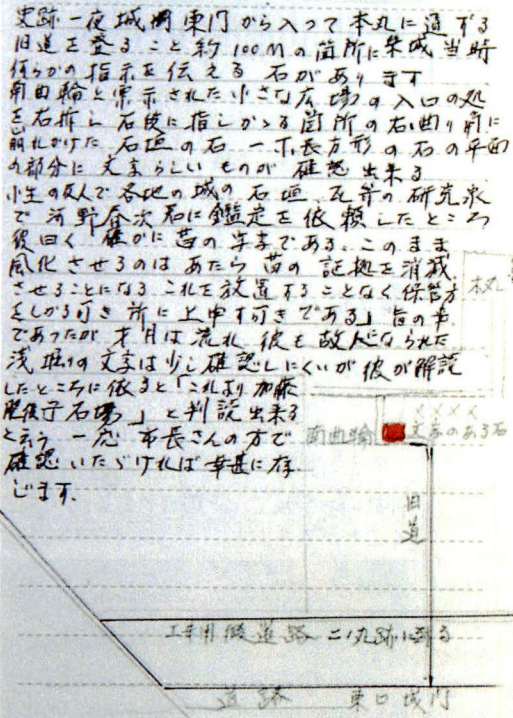 史跡一夜城趾東門から入って本丸に通ずる
旧道を登ること約100Mの箇所に築城当時
何らかの指示を伝える石があります
南曲輪と標示された小さな広場の入口の処
を右折し石段に指しかゝる箇所の右曲り角に
崩れかけた石垣の石一ヶ長方形の石の平面
の部分に文字らしいものが確認出来る
小生の友人で各地の城の石垣瓦等の研究家
で河野春次君に鑑定を依頼したところ
彼曰く確かに昔の字である、このまま
風化させるのはあたら昔の証拠を消滅
させることになるこれを放置することなく保管方
をしかる可き所に上申す可きである」旨の事
であったが才月は流れ彼も故人になられた
浅堀りの文字は少し確認しにくいが彼が解読
したところに依ると「これより加藤
肥後守石場」と判読出来る
と云う一応市長さんの方で
確認いただければ幸甚に存
じます.
本丸
××××
南曲輪
文字のある石
旧道
工事用仮道路 二ノ丸跡に至る
道路 東口城門